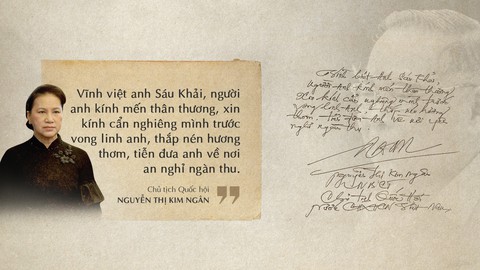 Vĩnh việt anh Sáu Khải, người
anh kính mến thân thương, xin
kính cẩn nghiêng mình trước
vong linh anh, thắp nén hương
thơm, tiễn đưa anh về nơi
an nghỉ ngàn thu.
Chủ tịch Quốc hội
NGUYỄN THỊ KIM NGÂN
Vĩnh biệt Anh Sáu Khải,
Người Anh kính mến thân thương
Xin kính cẩn nghiêng mình trước
vong linh Anh, thắp nén hương
thơm. Tiễn đưa Anh về nơi yên
nghỉ ngàn thu.
Nguyễn Thị Kim Ngân
UVBCT
Chủ tịch Quốc Hội
nước CHXHCN Việt Nam